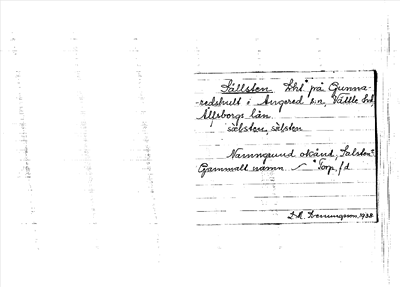 Sällsten Lht. på Gunna-
redshult i Angered sn, Vättle hd,
Älfsborgs län.
sælsten, sälsten
Namngrund okänd, Salsten
Gammalt namn. Torp, f d
1938